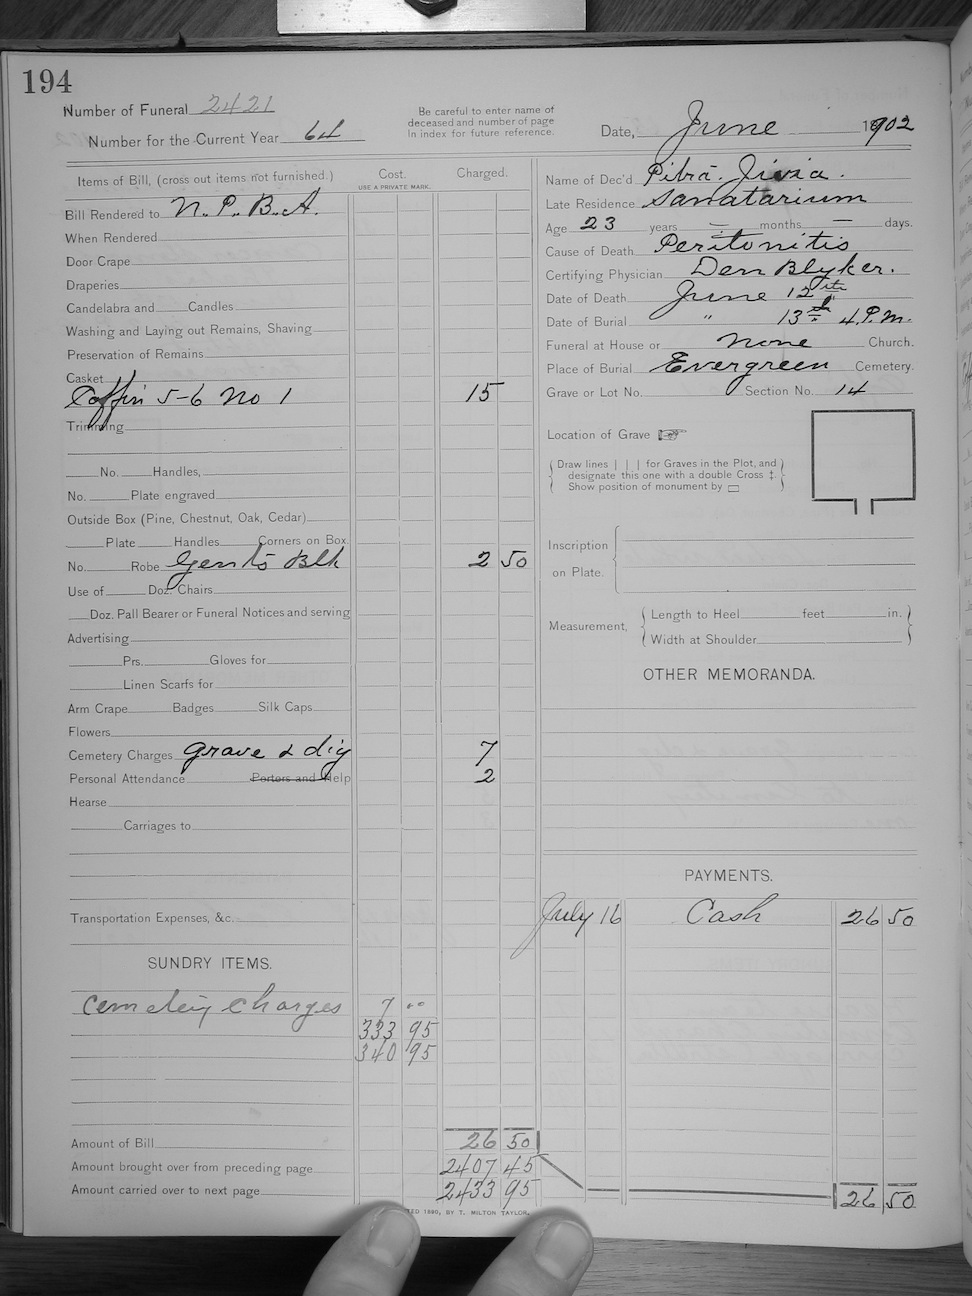 194
Number of Funeral 2421
Number for the Current Year 64
Be careful to enter name of
deceased and number of page
In index for future reference.
Date, June 1902
Items of Bill, (cross out items not furnished.)
Cost.
USE A PRIVATE MARK.
Charged.
Bill Rendered to N.P.B.A.
When Rendered
Door Crape
Draperies
Candelabra and Candles
Washing and Laying out Remains, Shaving
Preservation of Remains
Casket
Coffin 5-6 No 1 15
Trimming
No. Handles,
No. Plate engraved
Outside Box (Pine, Chestnut, Oak, Cedar)
Plate Handles Corners on Box.
No. Robe Gents Blk 2 50
Use of Doz. Chairs
Doz. Pall Bearer or Funeral Notices and serving
Advertising
Prs. Gloves for
Linen Scarfs for
Arm Crape Badges Silk Caps
Flowers
Cemetery Charges grave & dig 7
Personal Attendance Porters and Help 2
Hearse
Carriages to
Transportation Expenses, &c.
SUNDRY ITEMS.
Cemetery Charges 7 00
333 95
340 95
Amount of Bill 26 50
Amount brought over from preceding page 2407 45
Amount carried over to next page 2433 95
Name of Dec'd
Late Residence Sanatarium
Age 23 years — months — days.
Cause of Death Peritonitis
Certifying Physician Den Blyker.
Date of Death June 12th
Date of Burial " 13th 4 P.M.
Funeral at House or none Church.
Place of Burial Evergreen Cemetery.
Grave or Lot No. Section No. 14
Location of Grave ☞
Draw lines | | | for Graves in the Plot, and
designate this one with a double Cross ‡.
Show position of monument by ▭
Inscription
on Plate.
Measurement,
Length to Heel feet in.
Width at Shoulder
OTHER MEMORANDA.
PAYMENTS.
July 16 Cash 26 50
26 50
TED 1890, BY T. MILTON TAYLOR.